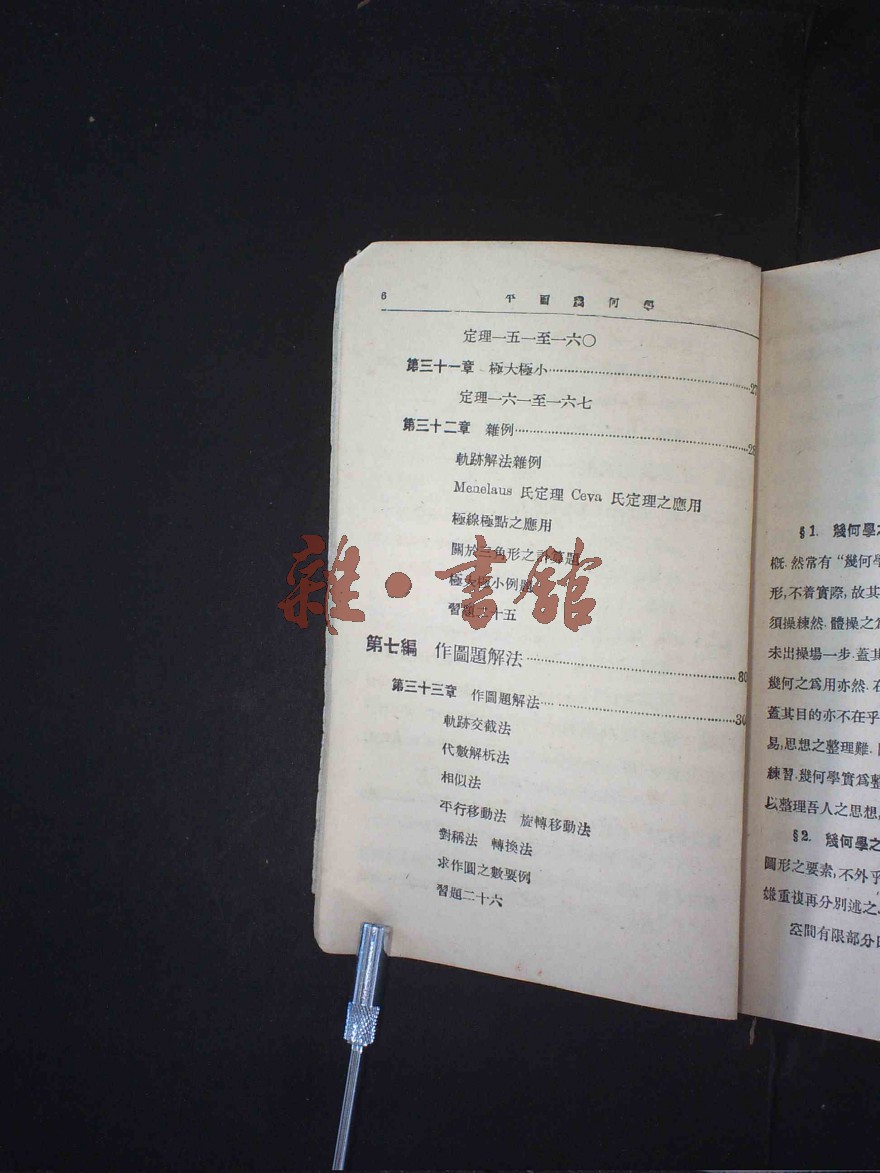 6 平面幾何學
定理一五一至一六〇
第三十一章 極大極小……27
定理一六一至一六七
第三十二章 雜例……28
軌跡解法雜例
Menelaus 氏定理 Ceva 氏定理之應用
極線極點之應用
關於三角形之計算題
極大極小例題
習題二十五
第七編 作圖題解法……30
第三十三章 作圖題解法……30
軌跡交截法
代數解析法
相似法
平行移動法 旋轉移動法
對稱法 轉換法
求作圓之數要例
習題二十六
雜·書館
§1. 幾何學之
概. 然常有“幾何學
形,不着實際,故其
須操練然. 體操之爲
未出操場一步. 蓋其
幾何之爲用亦然. 在
蓋其目的亦不在乎
易,思想之整理難.
練習. 幾何學實爲整
以整理吾人之思想,
§2. 幾何學之
圖形之要素,不外乎
嫌重複再分別述之.
空間有限部分